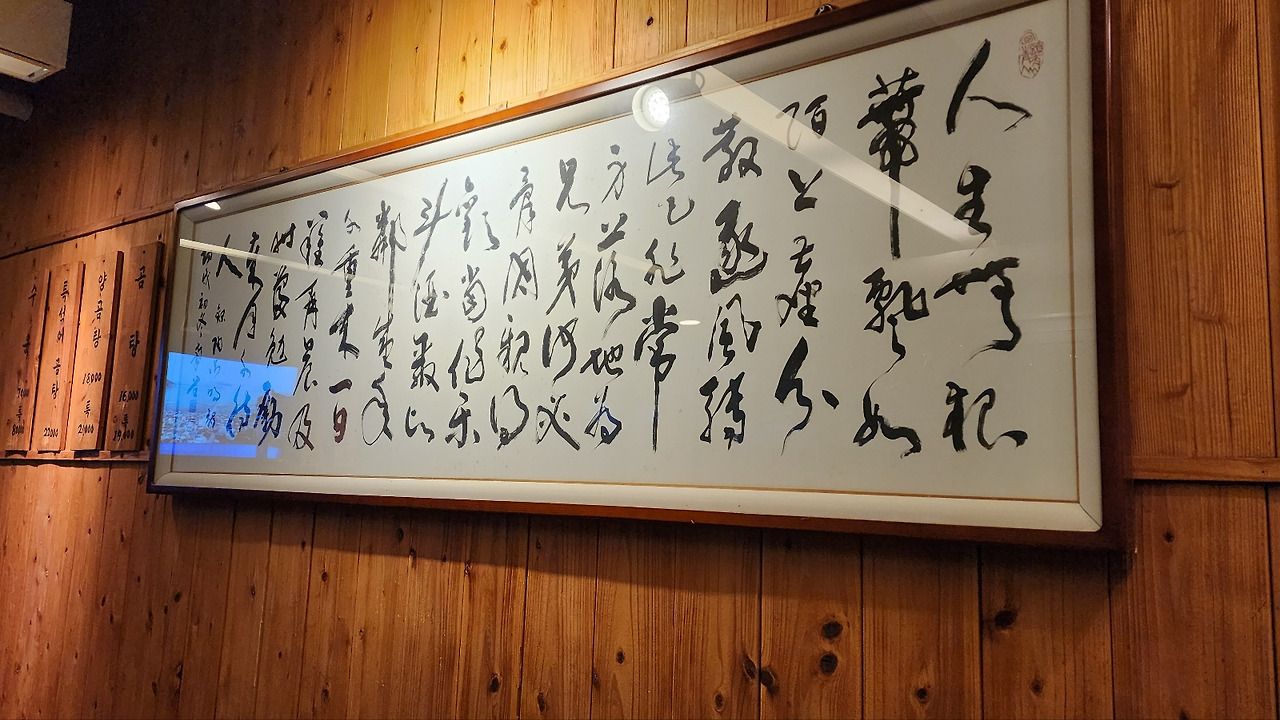 人生無根
蔕飄如
陌上塵分
散逐風轉
此已非常
身落地為
兄弟何必
骨肉親得
歡當作樂
斗酒聚比
鄰盛年
不重來一日
難再晨及
時當勉勵
歲月不待
人
곰탕 16,000 특 19,000
양곰탕 18000 특
곰탕 22000
수육